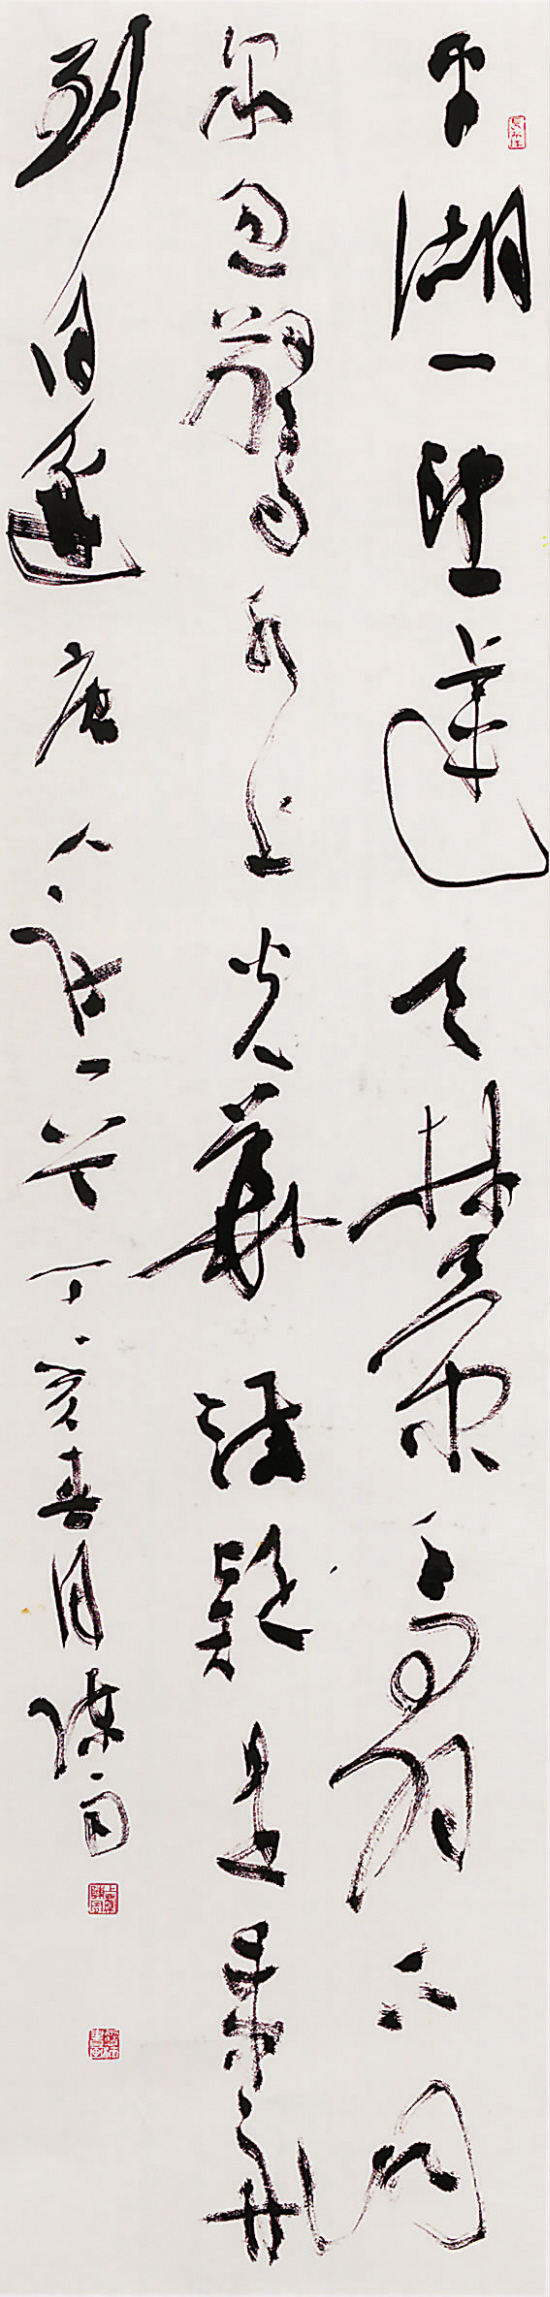 平湖一望上連天林景千尋下洞
泉忽驚水上光華滿疑是乘舟
到日邊唐人詩一首丁亥春月陳